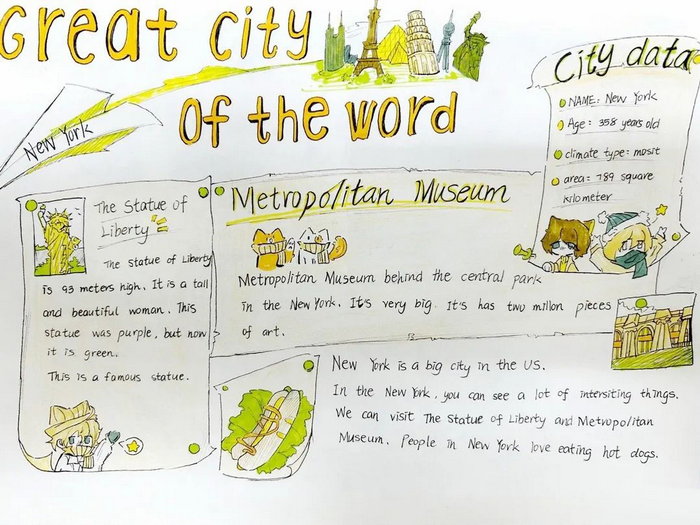 Great city
Of the word
New York
City data
NAME: New York
Age: 358 years old
climate type: mosit
area: 789 square
kilometer
The Statue of
Liberty
The Statue of Liberty
is 93 meters high. It is a tall
and beautiful woman. This
statue was purple, but now
it is green.
This is a famous statue.
Metropolitan Museum
Metropolitan Museum behind the central park
in the New York. It's very big. It's has two millon pieces
of art.
New York is a big city in the US.
In the New York, you can see a lot of intersiting things.
We can visit The Statue of Liberty and Metropolitan
Museum. People in New York love eating hot dogs.